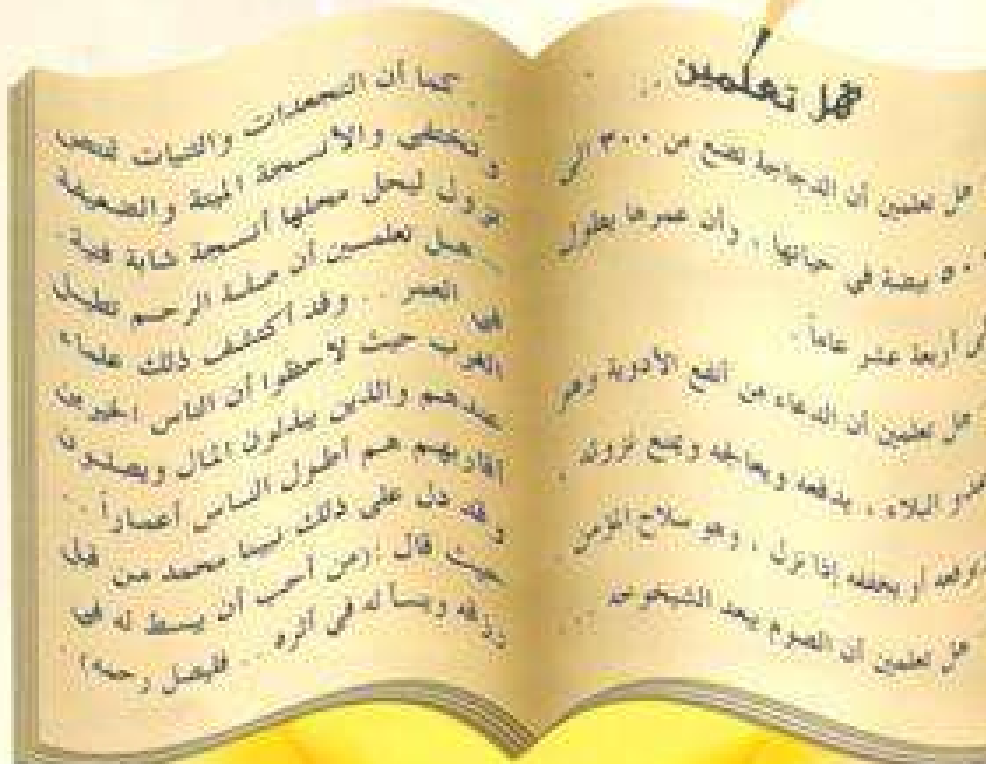 هل تعلمين ..
هل تعلمين أن الدجاجة تضع من ٣٠٠ الى
٥٠٠ بيضة في حياتها ، وأن عمرها يطول
أربعة عشر عاماً .
هل تعلمين أن الدعاء من أنفع الأدوية وهو
عدو البلاء ، يدفعه ويعالجه ويمنع نزوله .
أو يخففه إذا نزل ، وهو سلاح المؤمن .
هل تعلمين أن الصوم يبعد الشيخوخة ...
كما أن التجعدات والثنيات تنقص
وتختفي والأنسجة الميتة والضعيفة
تزول ليحل محلها أنسجة شابة فتية .
ـ هل تعلمين أن صلة الرحم تطيل
في العمر .. وقد اكتشف ذلك علماء
الغرب حيث لاحظوا أن الناس الخيرين
عندهم والذين يبذلون المال ويصلون
أقاربهم هم أطول الناس أعماراً .
وقد دل على ذلك نبينا محمد من قبل
حيث قال : (من أحب أن يبسط له في
رزقه وينسأ له في أثره .. فليصل رحمه)